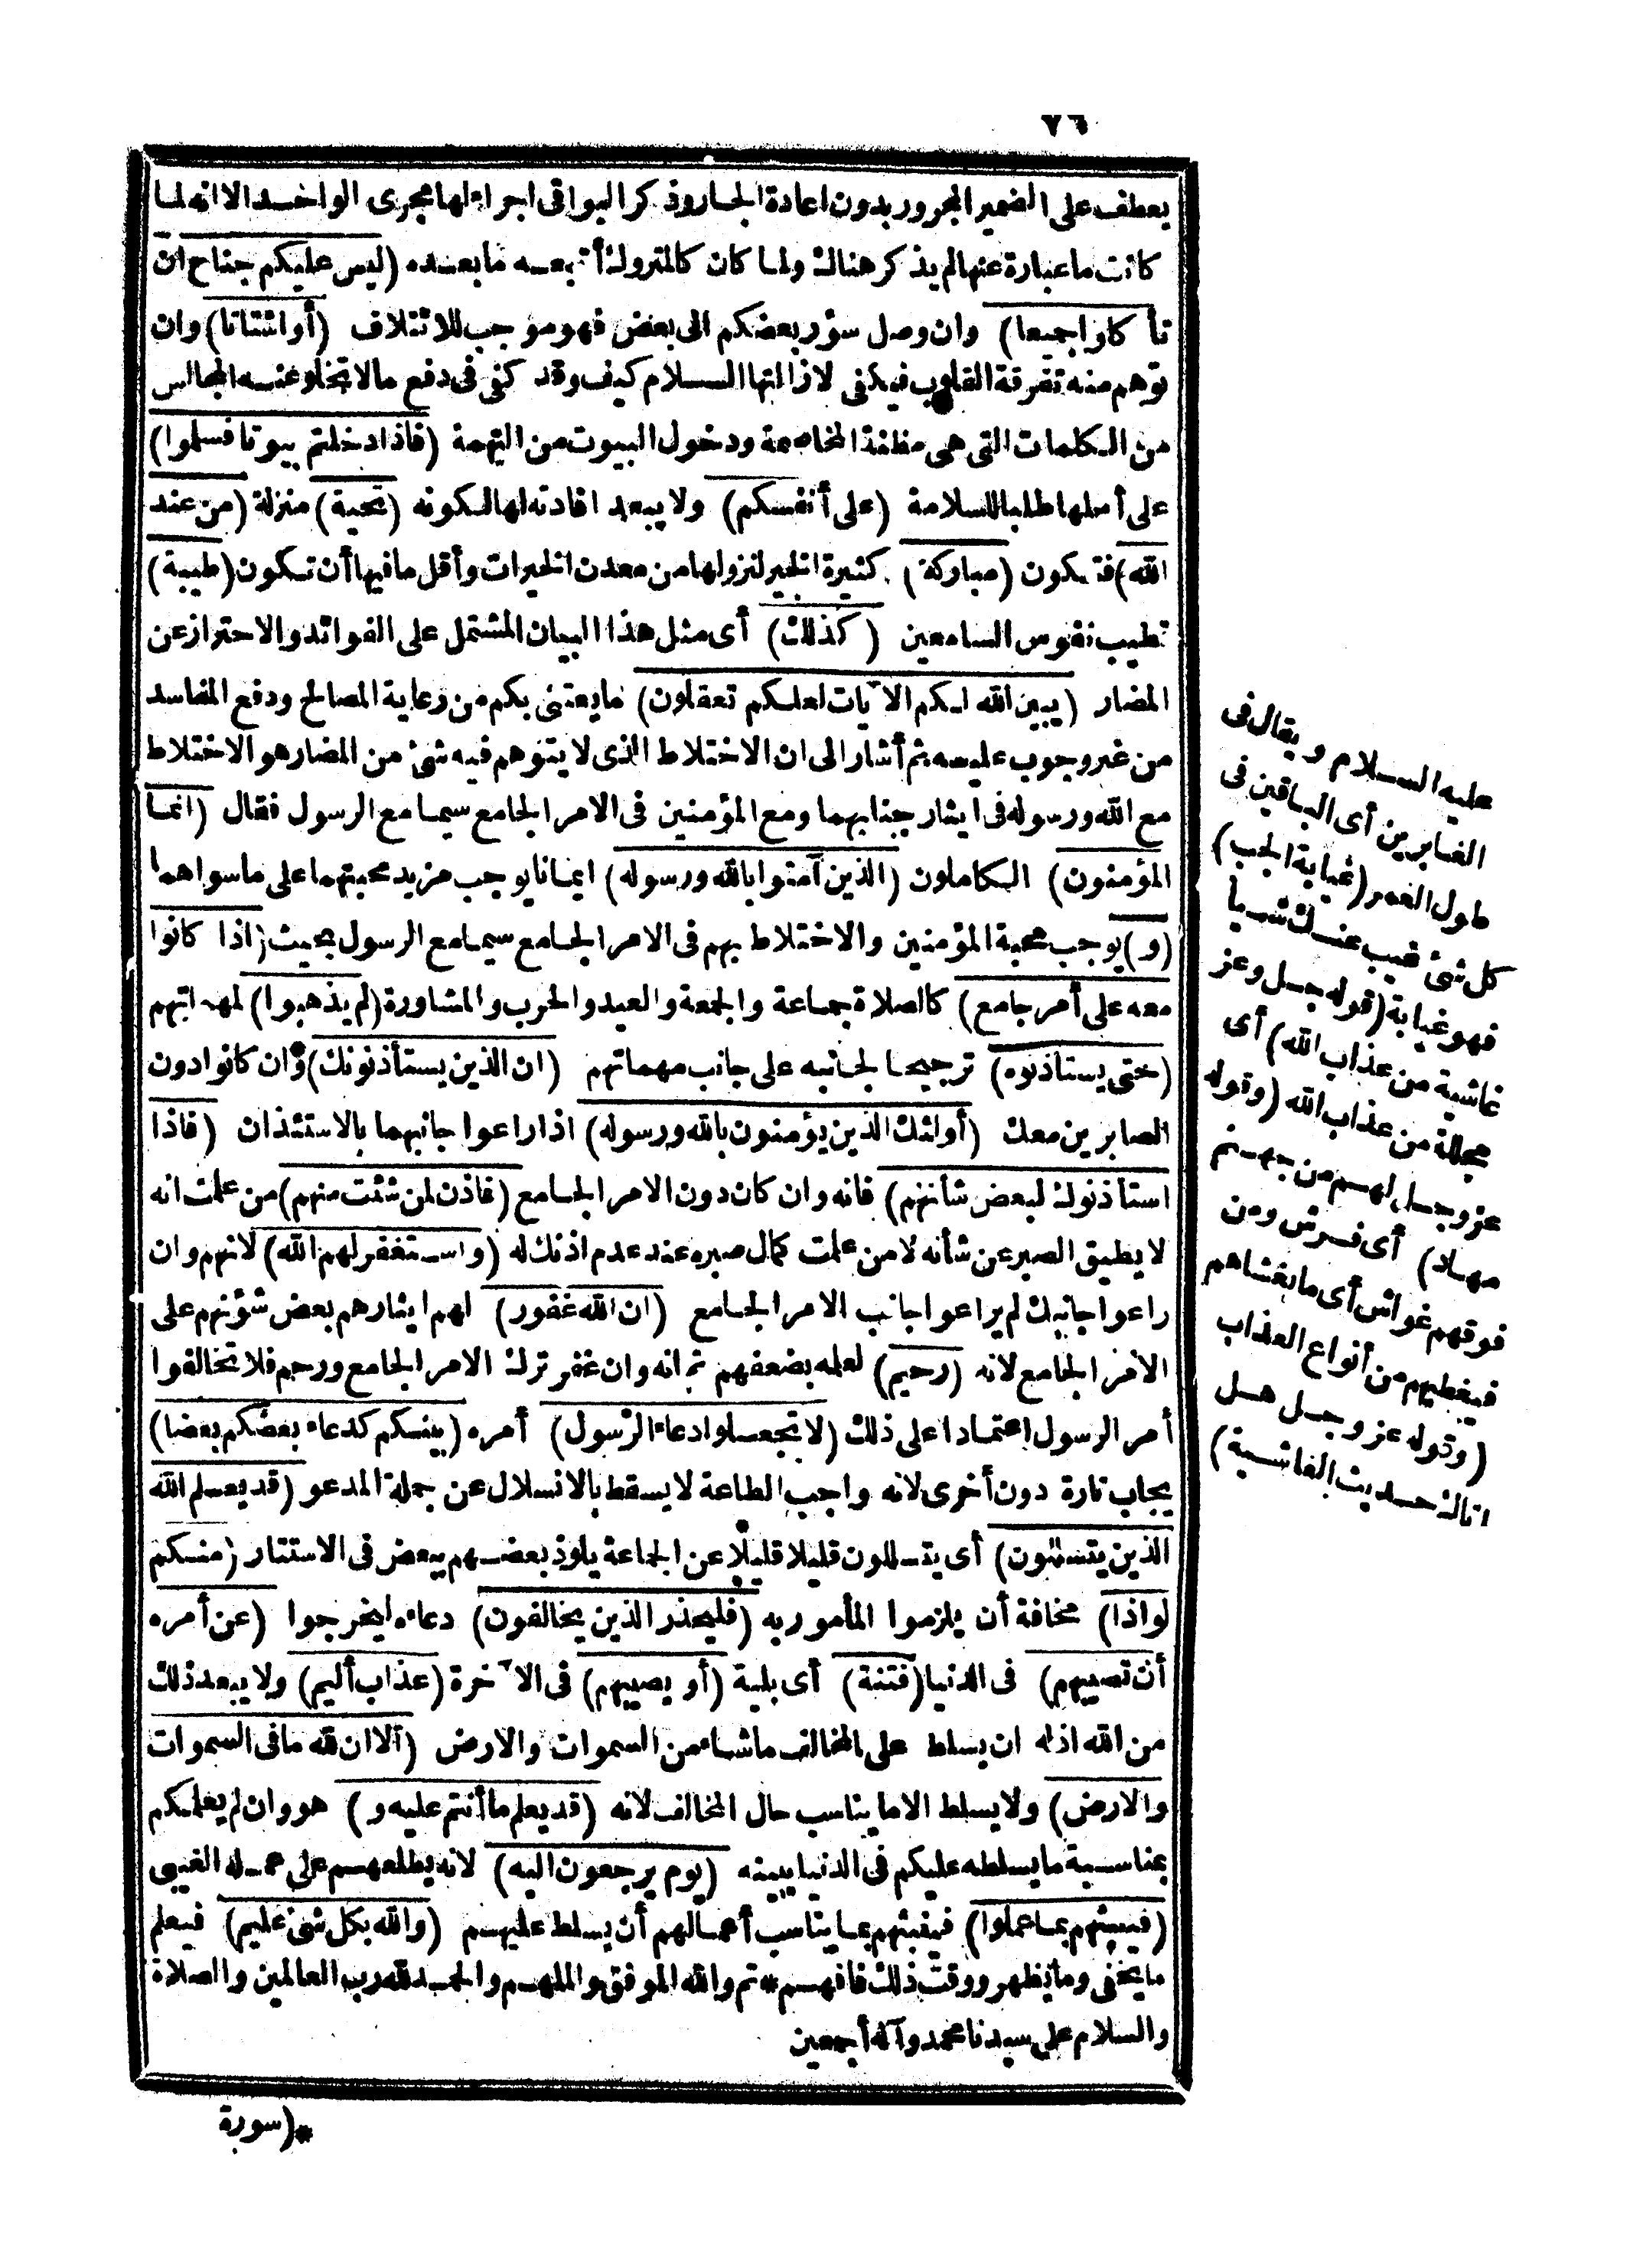 ٧٦
يعطف على الضمير المجرور بدون اعادة الجار وذكر البواقى اجراء لها مجرى الواحد الا انه لما
كانت ما عبارة عنها لم يذكر هناك ولما كان كالمتروك أتبعه ما بعده (ليس عليكم جناح ان
تأكلوا جميعا) وان وصل سؤر بعضكم الى بعض فهو موجب للائتلاف (أو اشتاتا) وان
توهم منه تفرقة القلوب فيكفى لازالتها السلام كيف وقد كفى فى دفع ما لا تخلو عنه المجالس
من الكلمات التى هى مظنة المخاصمة ودخول البيوت من التهمة (فاذا دخلتم بيوتا فسلموا)
على أهلها طلبا للسلامة (على أنفسكم) ولا يبعد افادته لها لكونه (تحية) منزلة (من عند
الله) فتكون (مباركة) كثيرة الخير لنزولها من معدن الخيرات وأقل ما فيها أن تكون (طيبة)
تطيب نفوس السامعين (كذلك) أى مثل هذا البيان المشتمل على الفوائد والاحتراز عن
المضار (يبين الله لكم الآيات لعلكم تعقلون) ما يعتنى بكم من رعاية المصالح ودفع المفاسد
من غير وجوب عليه ثم أشار الى ان الاختلاط الذى لا يتوهم فيه شئ من المضار هو الاختلاط
مع الله ورسوله فى ايثار جنابهما ومع المؤمنين فى الامر الجامع سيما مع الرسول فقال (انما
المؤمنون) الكاملون (الذين آمنوا بالله ورسوله) ايمانا يوجب مزيد محبتهما على ما سواهما
(و) يوجب محبة المؤمنين والاختلاط بهم فى الامر الجامع سيما مع الرسول بحيث (اذا كانوا
معه على أمر جامع) كالصلاة جماعة والجمعة والعيد والحرب والمشاورة (لم يذهبوا) لمهماتهم
(حتى يستأذنوه) ترجيحا لجانبه على جانب مهماتهم (ان الذين يستأذنونك) وان كانوا دون
الصابرين معك (أولئك الذين يؤمنون بالله ورسوله) اذا راعوا جانبهما بالاستئذان (فاذا
استأذنوك لبعض شأنهم) فانه وان كان دون الامر الجامع (فاذن لمن شئت منهم) من علمت انه
لا يطيق الصبر عن شأنه لا من علمت كمال صبره عند عدم اذنك له (واستغفر لهم الله) لانهم وان
راعوا جانبك لم يراعوا جانب الامر الجامع (ان الله غفور) لهم ايثارهم بعض شؤنهم على
الامر الجامع لانه (رحيم) لعلمه بضعفهم ثم انه وان غفر ترك الامر الجامع ورحم فلا تخالفوا
أمر الرسول اعتمادا على ذلك (لا تجعلوا دعاء الرسول) أمره (بينكم كدعاء بعضكم بعضا)
يجاب تارة دون أخرى لانه واجب الطاعة لا يسقط بالانسلال عن جملة المدعو (قد يعلم الله
الذين يتسللون) أى يتسللون قليلا قليلا عن الجماعة يلوذ بعضهم ببعض فى الاستتار (منكم
لواذا) مخافة أن يلزموا المأمور به (فليحذر الذين يخالفون) دعاءه ليخرجوا (عن أمره
أن تصيبهم) فى الدنيا (فتنة) أى بلية (أو يصيبهم) فى الآخرة (عذاب أليم) ولا يبعد ذلك
من الله اذ له ان يسلط على المخالف ما شاء من السموات والارض (ألا ان لله ما فى السموات
والارض) ولا يسلط الا ما يناسب حال المخالف لانه (قد يعلم ما أنتم عليه و) هو وان لم يعلمكم
بمناسبة ما يسلطه عليكم فى الدنيا يبينه (يوم يرجعون اليه) لانه يطلعهم على عمله الغيبى
(فينبئهم بما عملوا) فينبئهم بما يناسب أعمالهم أن يسلط عليهم (والله بكل شئ عليم) فيعلم
ما يخفى وما يظهر ووقت ذلك فافهم * تم والله الموفق والملهم والحمد لله رب العالمين والصلاة
والسلام على سيدنا محمد وآله أجمعين
*(سورة
عليه السلام ويقال فى
الغابرين أى الباقين فى
طول العمر (غيابة الجب)
كل شئ غيب عنك شيأ
فهو غيابة (قوله جل وعز
غاشية من عذاب الله) أى
مجللة من عذاب الله (وقوله
عز وجل لهم من جهنم
مهاد) أى فرش ومن
فوقهم غواش أى ما يغشاهم
فيغطيهم من أنواع العذاب
(وقوله عز وجل هل
اتاك حديث الغاشية)